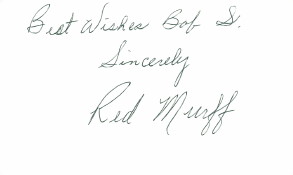 Best Wishes Bob S.
Sincerely
Red Murff